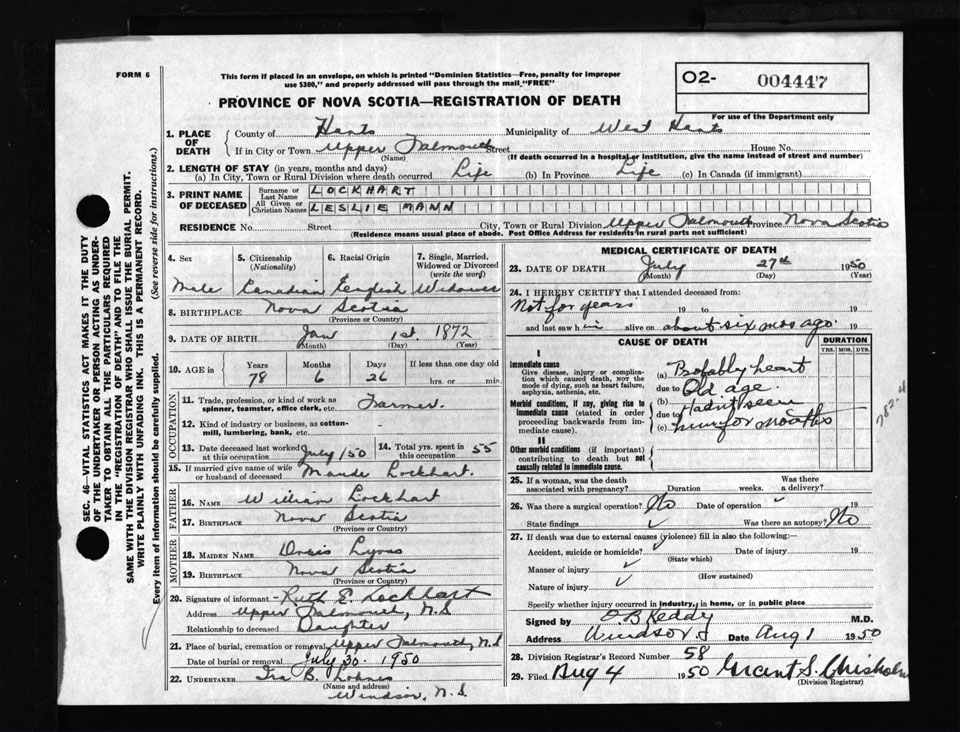 FORM 6
This form if placed in an envelope, on which is printed "Dominion Statistics—Free, penalty for improper
use $300," and properly addressed will pass through the mail "FREE"
O2- 004447
For use of the Department only
PROVINCE OF NOVA SCOTIA—REGISTRATION OF DEATH
SEC. 46—VITAL STATISTICS ACT MAKES IT THE DUTY
OF THE UNDERTAKER OR PERSON ACTING AS UNDER-
TAKER TO OBTAIN ALL THE PARTICULARS REQUIRED
IN THE "REGISTRATION OF DEATH" AND TO FILE THE
SAME WITH THE DIVISION REGISTRAR WHO SHALL ISSUE THE BURIAL PERMIT.
WRITE PLAINLY WITH UNFADING INK. THIS IS A PERMANENT RECORD.
Every item of information should be carefully supplied. (See reverse side for instructions.)
1. PLACE OF DEATH County of Hants Municipality of West Hants
If in City or Town Upper Falmouth Street House No.
(Name) (If death occurred in a hospital or institution, give the name instead of street and number)
2. LENGTH OF STAY (in years, months and days)
(a) In City, Town or Rural Division where death occurred Life (b) In Province Life (c) In Canada (if immigrant)
3. PRINT NAME OF DECEASED Surname or Last Name LOCKHART
All Given or Christian Names LESLIE MANN
RESIDENCE No. Street City, Town or Rural Division Upper Falmouth Province Nova Scotia
(Residence means usual place of abode. Post Office Address for residents in rural parts not sufficient)
4. Sex 5. Citizenship (Nationality) 6. Racial Origin 7. Single, Married, Widowed or Divorced (write the word)
Male Canadian English Widower
8. BIRTHPLACE Nova Scotia
(Province or Country)
9. DATE OF BIRTH Jan 1st 1872
(Month) (Day) (Year)
10. AGE in Years Months Days If less than one day old
78 6 26 hrs. or min.
OCCUPATION
11. Trade, profession, or kind of work as spinner, teamster, office clerk, etc. Farmer.
12. Kind of industry or business, as cotton-mill, lumbering, bank, etc. -
13. Date deceased last worked at this occupation July /50 14. Total yrs. spent in this occupation 55
15. If married give name of wife or husband of deceased Maude Lockhart.
FATHER
16. NAME William Lockhart
17. BIRTHPLACE Nova Scotia
(Province or Country)
MOTHER
18. MAIDEN NAME Lyons
19. BIRTHPLACE Nova Scotia
(Province or Country)
20. Signature of informant Ruth E. Lockhart
Address Upper Falmouth, N.S
Relationship to deceased Daughter
21. Place of burial, cremation or removal Upper Falmouth, N.S
Date of burial or removal July 30. 1950
22. UNDERTAKER Ira B. Lohnes
(Name and address)
Windsor, N.S.
MEDICAL CERTIFICATE OF DEATH
23. DATE OF DEATH July 27th 1950
(Month) (Day) (Year)
24. I HEREBY CERTIFY that I attended deceased from:
Not for years 19 to 19
and last saw him alive on about six mos ago 19
CAUSE OF DEATH DURATION
YRS. MOS. DYS.
I
Immediate cause
Give disease, injury or complica-
tion which caused death, NOT the
mode of dying, such as heart failure,
asphyxia, asthenia, etc.
(a) Probably heart
due to Old age.
Morbid conditions, if any, giving rise to
immediate cause (stated in order
proceeding backwards from im-
mediate cause).
(b) Hadn't seen
due to
(c) him for months
782-4
II
Other morbid conditions (if important)
contributing to death but not
causally related to immediate cause.
25. If a woman, was the death associated with pregnancy? Duration weeks. Was there a delivery?
26. Was there a surgical operation? No Date of operation 19
State findings Was there an autopsy? No
27. If death was due to external causes (violence) fill in also the following:—
Accident, suicide or homicide? Date of injury 19
(State which)
Manner of injury
(How sustained)
Nature of injury
Specify whether injury occurred in industry, in home, or in public place
Signed by B Reddy M.D.
Address Windsor Date Aug 1 1950
28. Division Registrar's Record Number 58
29. Filed Aug 4 1950 Grant S. Chisholm
(Division Registrar)